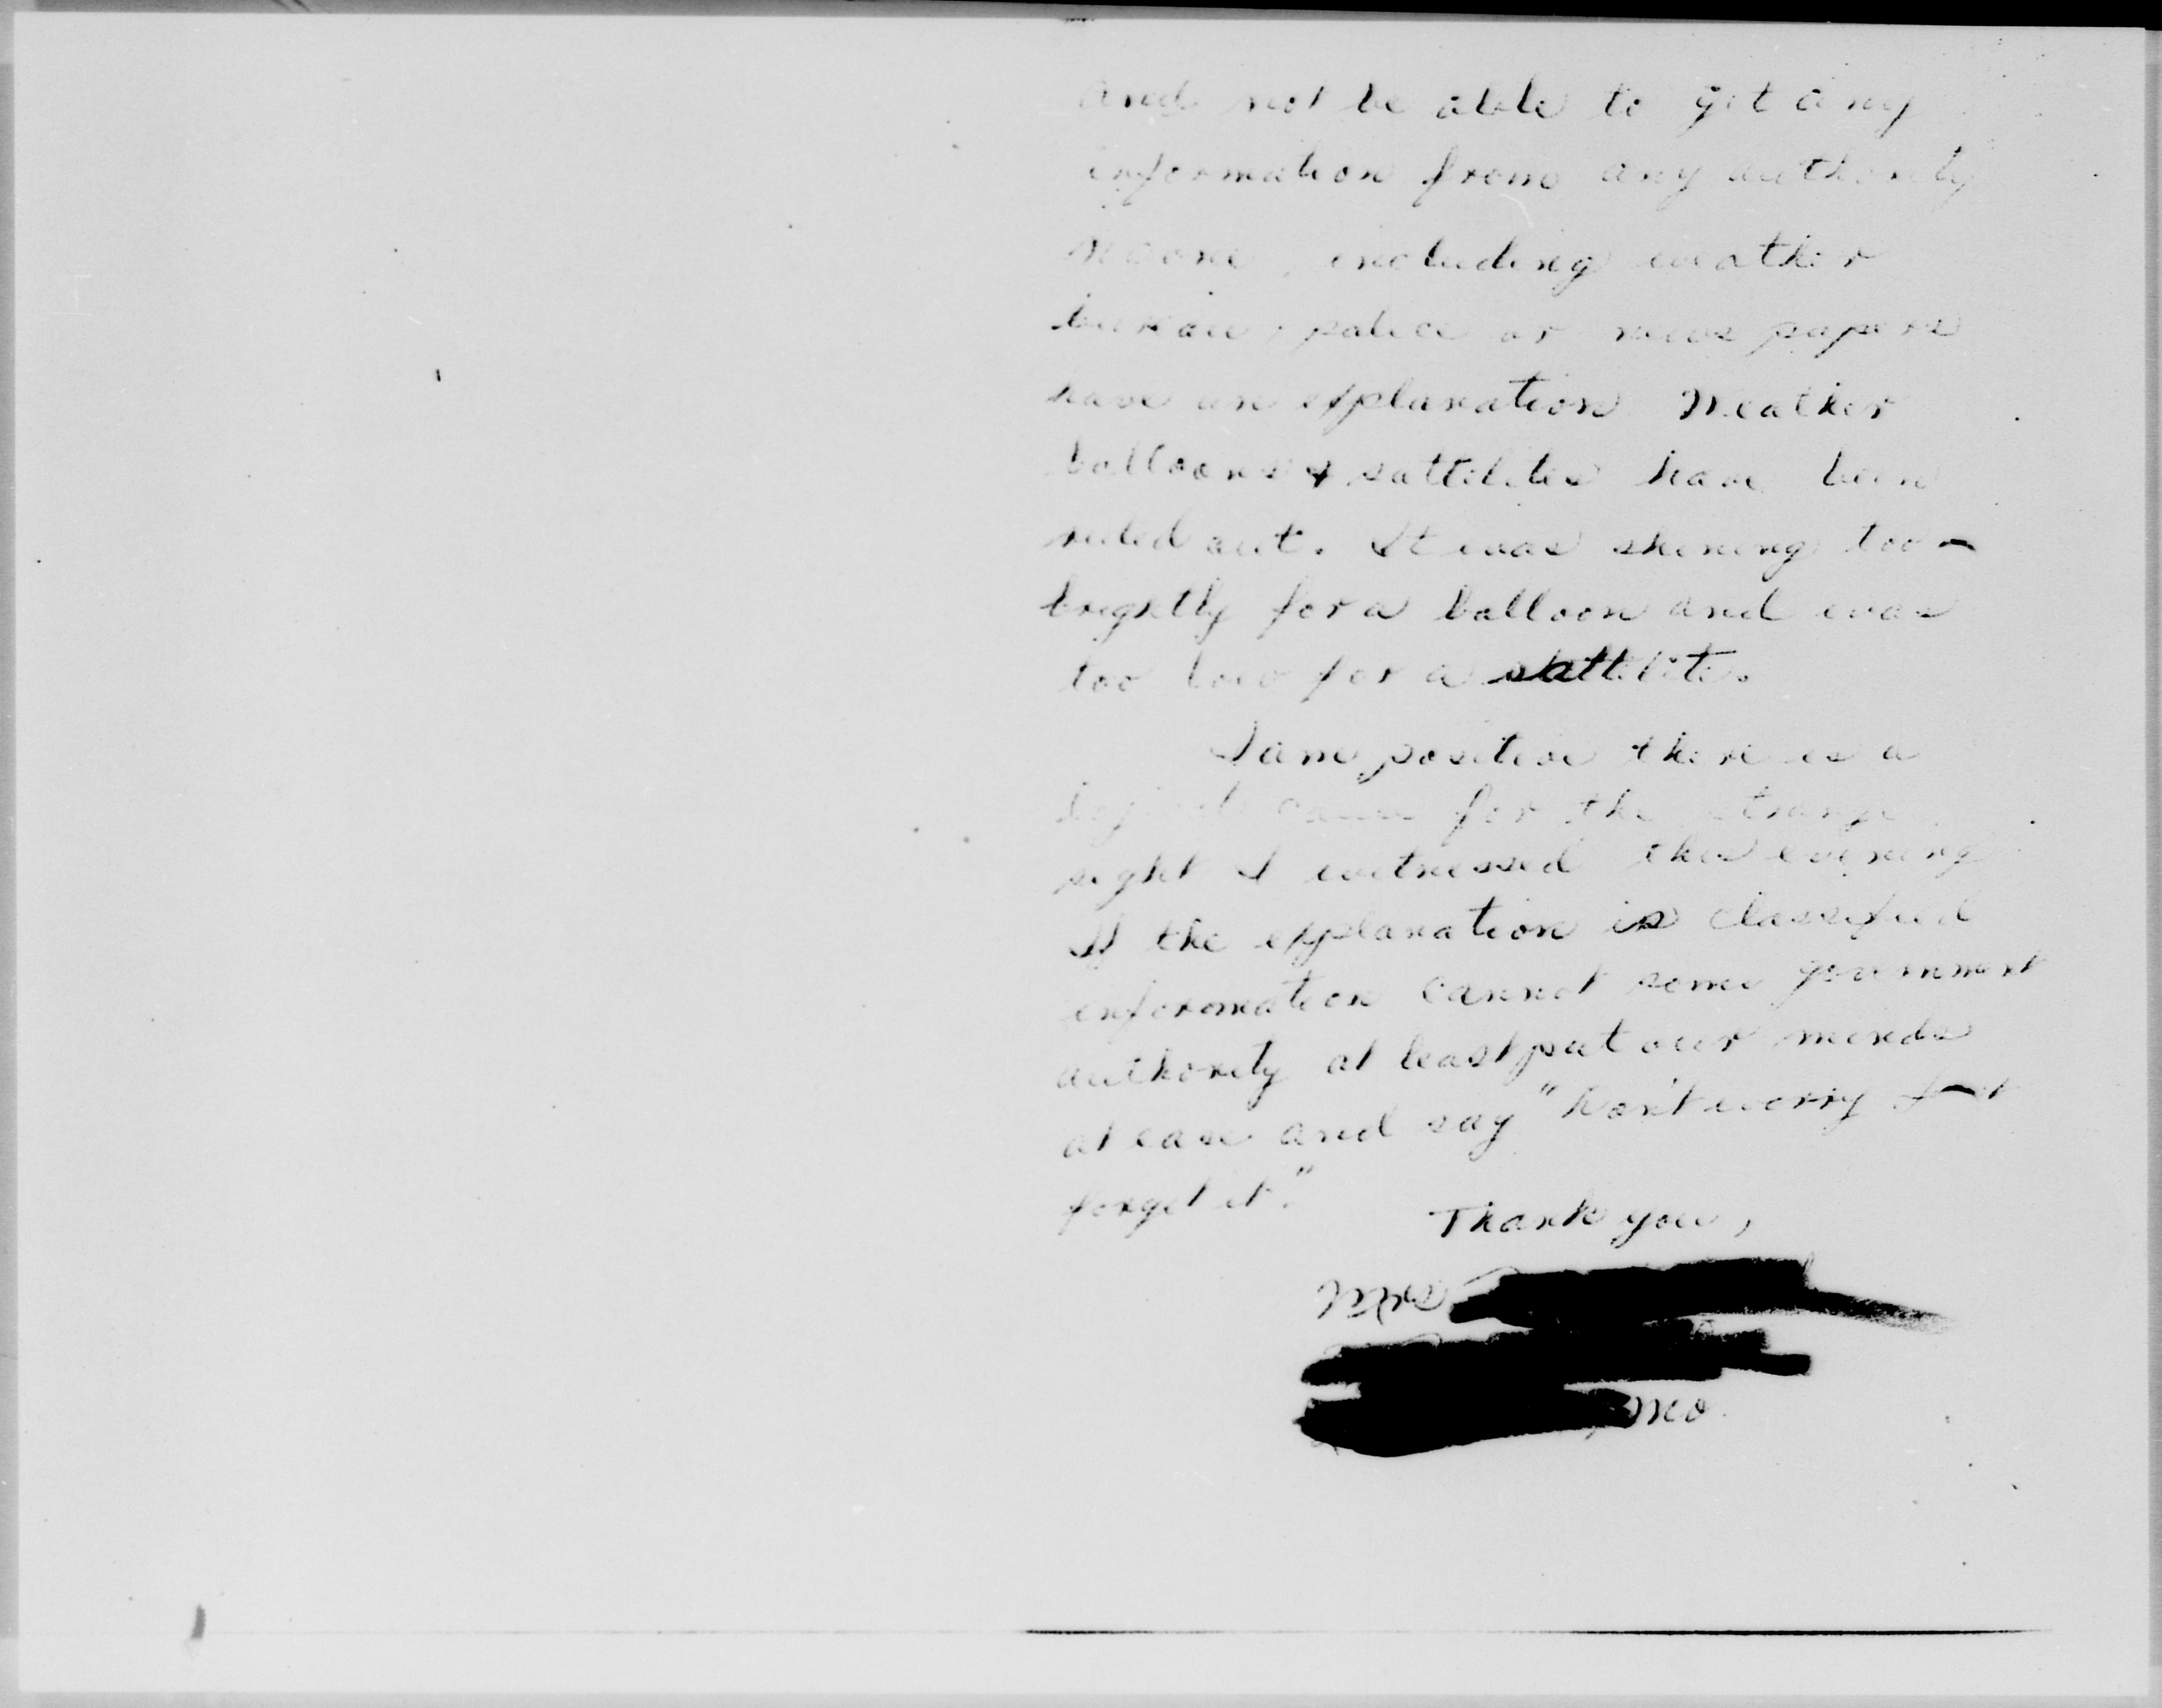 and not be able to get any
information from any authority
No one, including weather
bureau, police or news papers
have an explanation. Weather
balloons & sattilites have been
ruled out. It was shining too
brightly for a balloon and was
too low for a sattelite.
I am positive there is a
logical cause for the strange
sight I witnessed this evening
If the explanation is classified
information cannot some government
authority at least put our minds
at ease and say "Don't worry
forget it."
Thank you,
Mrs
Mo.